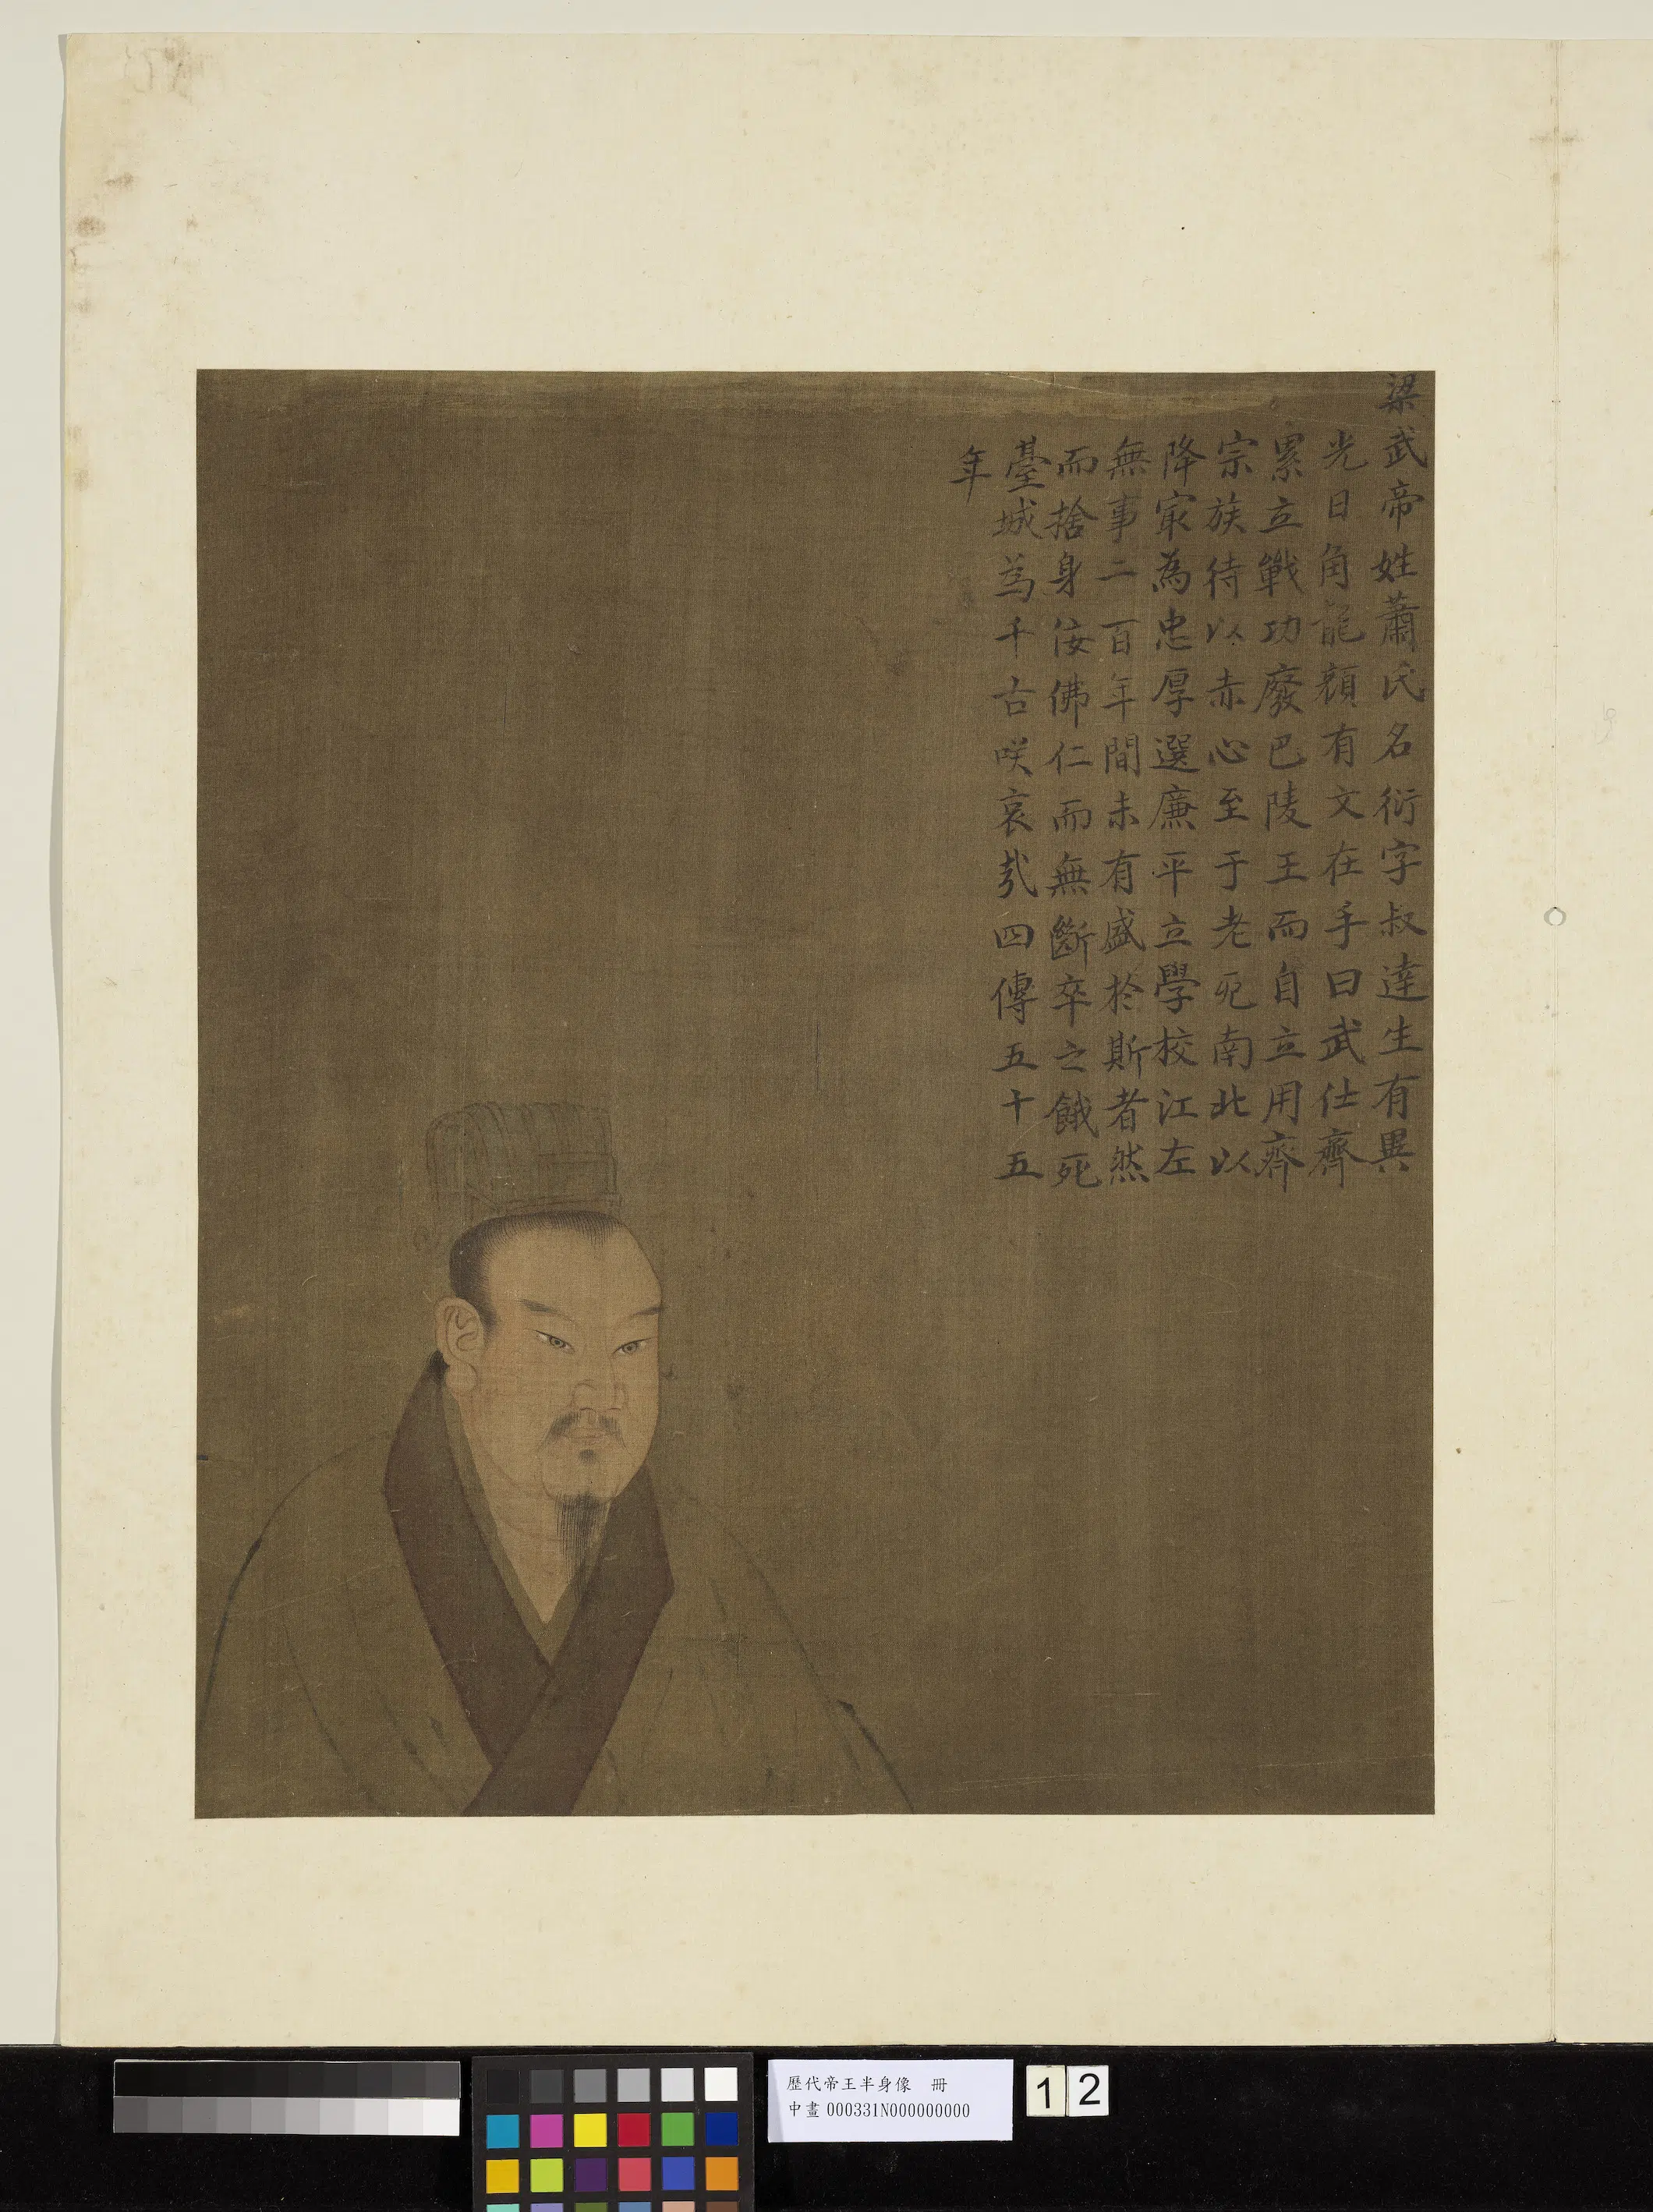 梁武帝姓蕭氏名衍字叔達生有異
光日角龍顏有文在手曰武仕齊
累立戰功廢巴陵王而自立用齊
宗族待以赤心至于老死南北以
降冣為忠厚選廉平立學校江左
無事二百年間未有盛於斯者然
而捨身佞佛仁而無斷卒之餓死
臺城為千古咲哀㢤四傳五十五
年
歷代帝王半身像 冊
中畫 000331N000000000
12